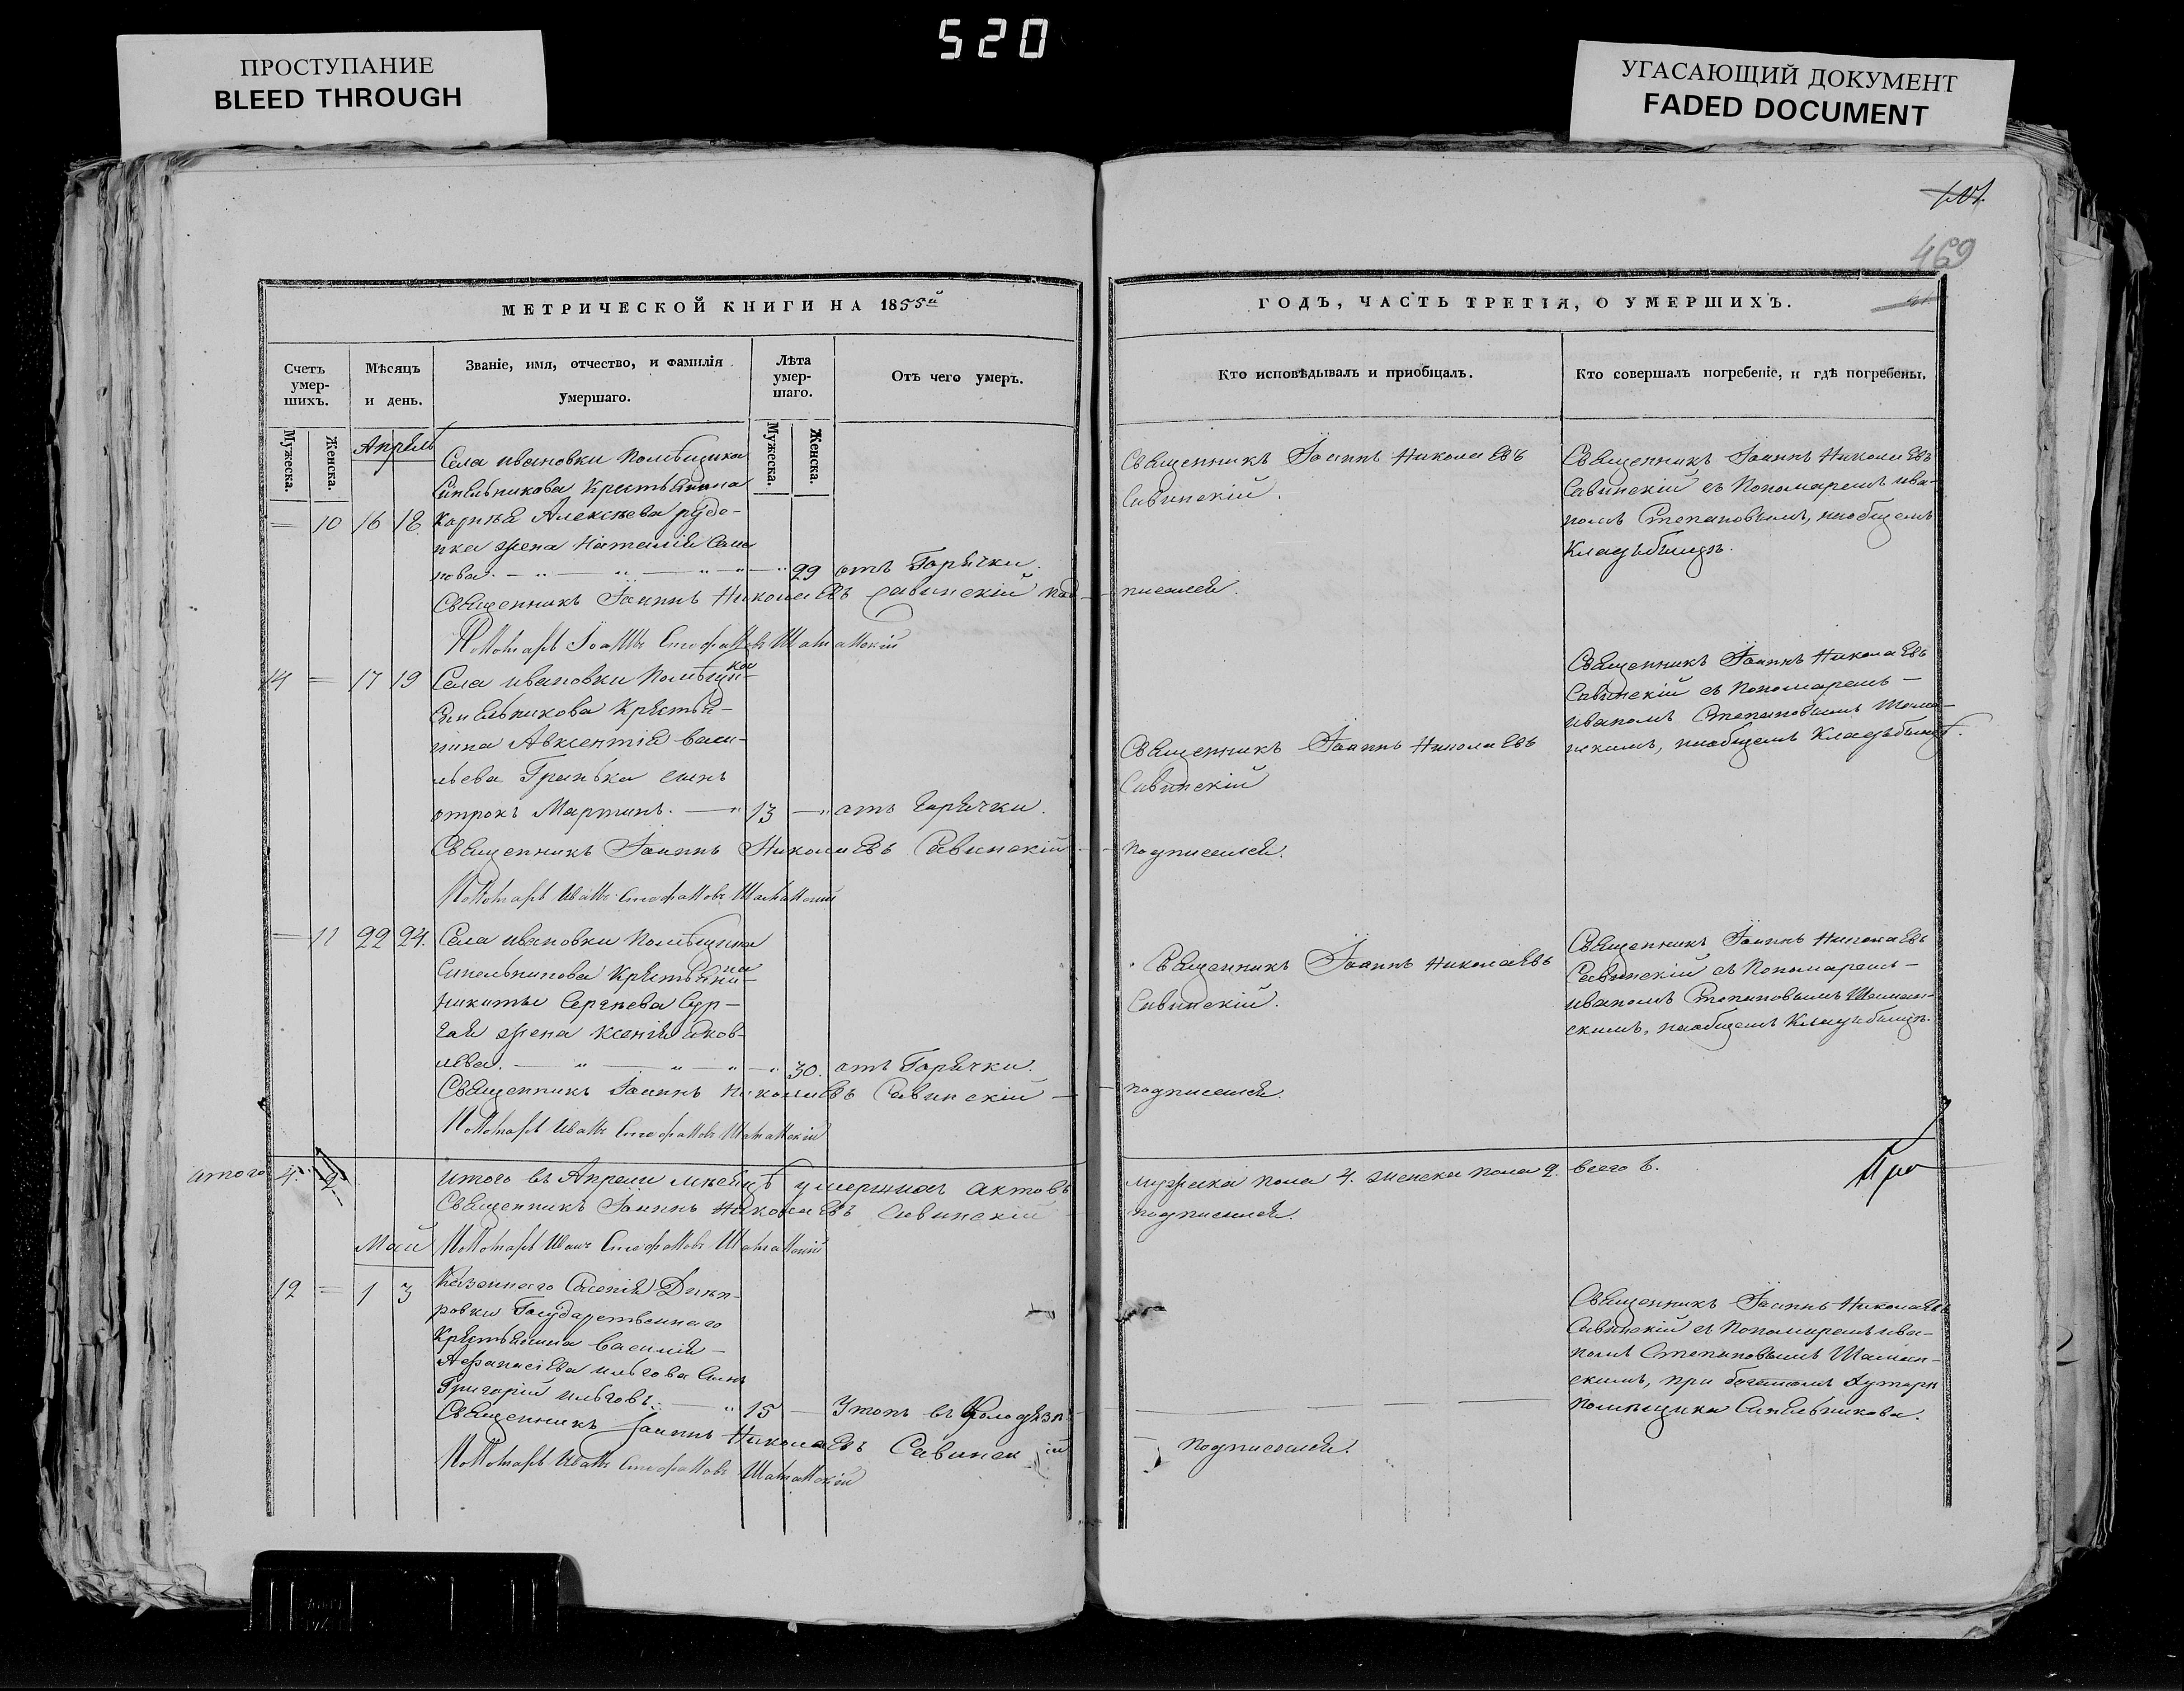 520
ПРОСТУПАНИЕ
BLEED THROUGH
УГАСАЮЩИЙ ДОКУМЕНТ
FADED DOCUMENT
101.
469
МЕТРИЧЕСКОЙ КНИГИ НА 1855й
ГОДЪ, ЧАСТЬ ТРЕТІЯ, О УМЕРШИХЪ.
Счетъ умер-шихъ.
Мѣсяцъ и день.
Званіе, имя, отчество, и фамилія умершаго.
Лѣта умер-шаго.
Отъ чего умеръ.
Кто исповѣдывалъ и приобщалъ.
Кто совершалъ погребеніе, и гдѣ погребены.
Мужеска.
Женска.
Мужеска.
Женска.
Апрѣль
Села ивановки Помѣщика
Синельникова Крестьянина
= 10 16 18 Корнѣя Алексѣева рудо-
нка жена Наталія Семе
нова. 29 отъ Горячки.
Священникъ Іоаннъ Николаевъ
Савинскій.
Священникъ Іоаннъ Николаевъ
Савинскій съ Пономаремъ ива-
номъ Степановымъ, наобщемъ
Кладъбищѣ.
Священникъ Іоаннъ Николаевъ Савинскій под-писался.
Пономарь Іоаннъ Стефановъ Шаманскій
14 = 17 19 Села ивановки Помѣщи-ка
Синельникова Крестья-
нина Авксентія васи-
льева Гранька сынъ
отрокъ Мартинъ. 13 отъ Горячки.
Священникъ Іоаннъ Николаевъ
Савинскій
Священникъ Іоаннъ Николаевъ
Савинскій съ Пономаремъ
иваномъ Степановымъ Шама-
нскимъ, наобщемъ Кладъбищѣ.
Священникъ Іоаннъ Николаевъ Савинскій подписался.
Пономарь Иванъ Стефановъ Шаманскій
= 11 22 24. Села ивановки Помѣщика
Синельникова Крестьяни-на
никиты Сергѣева Сур-
гая жена Ксенія яков-
лева. 30. отъ Горячки.
Священникъ Іоаннъ Николаевъ
Савинскій.
Священникъ Іоаннъ Николаевъ
Савинскій съ Пономаремъ
иваномъ Степановымъ Шаман-
скимъ, наобщемъ Кладъбищѣ.
Священникъ Іоаннъ Николаевъ Савинскій подписался.
Пономарь Иванъ Стефановъ Шаманскій
итого 4. 2 итого въ Апрели мѣсяцѣ умершихъ актовъ мужеска пола 4. женска пола 2. всего 6.
Священникъ Іоаннъ Николаевъ Савинскій подписался.
Май
Пономарь Иванъ Стефановъ Шаманскій
12 = 1 3 Казеннаго Селенія Днѣп-
ровки Государственнаго
Крестьянина василія
Афанасіева ильгова Сынъ
Григорій ильговъ. 15 Утопъ въ Колодѣзѣ
Священникъ Іоаннъ Николаевъ
Савинскій съ Пономаремъ ива-
номъ Степановымъ Шаман-
скимъ, при
Помѣщика Синельникова.
Священникъ Іоаннъ Николаевъ Савинскій подписался.
Пономарь Иванъ Стефановъ Шаманскій